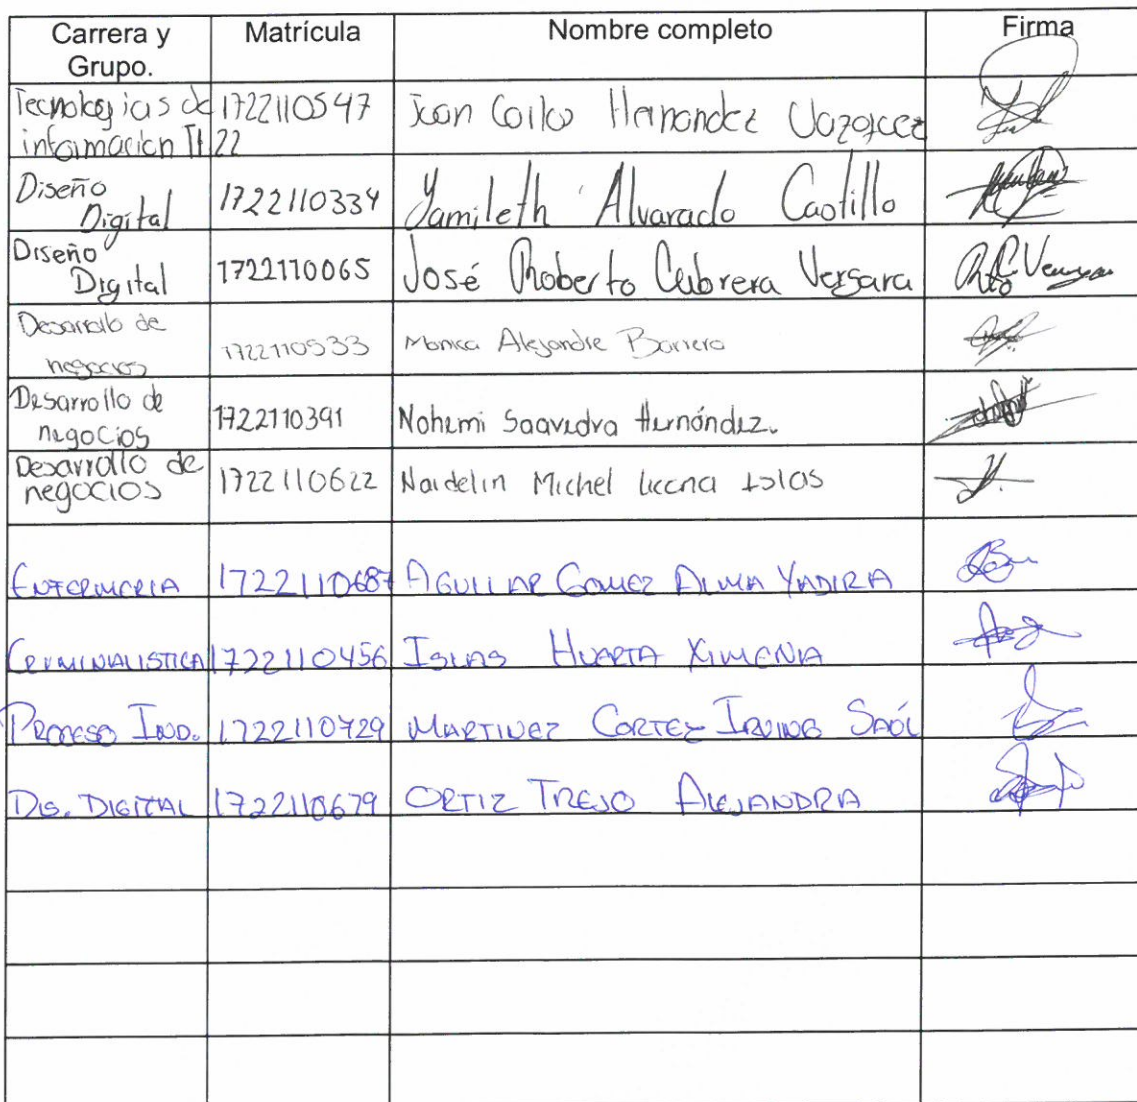 Carrera y Grupo. Matrícula Nombre completo Firma
Tecnologias de información TI 22 1722110547 Juan Carlos Hernandez Vazquez
Diseño Digital 1722110334 Yamileth Alvarado Castillo
Diseño Digital 1722110065 José Roberto Cabrera Vergara
Desarrollo de negocios 1722110533 Monica Alejandre Barrera
Desarrollo de negocios 1722110391 Nohemi Saavedra Hernández.
Desarrollo de negocios 1722110622 Naidelin Michel Licona Islas
ENFERMERIA 1722110687 AGUILLAR GOMEZ ALMA YADIRA
CRIMINALISTICA 1722110456 ISLAS HUARTA XIMENA
PROCESO IND. 1722110729 MARTINEZ CORTEZ IRVING SAÓL
DIS. DIGITAL 1722110679 ORTIZ TREJO ALEJANDRA